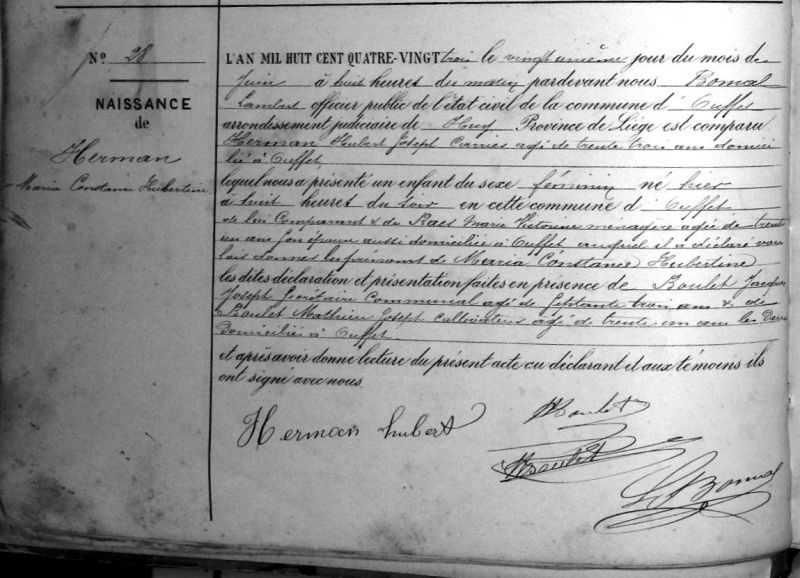 N° 28
NAISSANCE
de
Herman
Maria Constance Hubertine
L'AN MIL HUIT CENT QUATRE-VINGT trois le vingt unième jour du mois de
Juin à huit heures du matin pardevant nous Bomal
Lambert officier public de l'état civil de la commune d' Ouffet
arrondissement judiciaire de Huy Province de Liège est comparu
Herman Hubert Joseph Carrier agé de trente trois ans domici
lié à Ouffet
lequel nous a présenté un enfant du sexe féminin né hier
à huit heures du soir en cette commune d' Ouffet
de lui Comparant & de Raes Marie Victorine ménagère agée de trente
un ans son épouse aussi domiciliée à Ouffet auquel il a déclaré vou
loir donner les prénoms de Maria Constance Hubertine
les dites déclaration et présentation faites en présence de Boulet Jacques
Joseph Secrétaire Communal agé de septante trois ans & de
Boulet Mathieu Joseph cultivateur agé de trente un ans les Deux
Domiciliés à Ouffet
et après avoir donné lecture du présent acte au déclarant et aux témoins ils
ont signé avec nous.
Herman hubert
Boulet
Boulet
Bomal